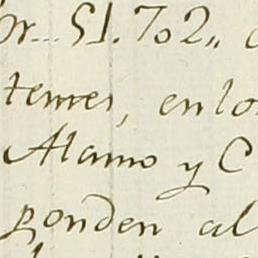 or... 51.702,,
temes, en lo
Alamo y C
ponden al